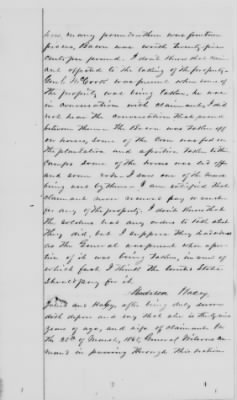 how many pounds there was fourteen
pieces, Bacon was worth twenty five
cents per pound. I don't know that
opposed to the taking of the property
Genl. McCook was present when some of
the property was being taken, he was
in conversation with claimant, I did
not hear the conversation that passed
between them. The Bacon was taken off
on horses, some of the Corn was fed on
the plantation and a portion taken to the
camps some of the horses was led off
and some rode. I saw one of the horses
being used by them. I am satisfied that
claimant never received pay or vouchers
for any of the property. I don't know that
the soldiers had any orders to take what
they did, but I suppose they had
as the General was present when a por-
tion of it was being taken, in view of
which fact I think the United States
should pay for it.
Haley
Haley, after being duly sworn
doth depose and say that she is thirty six
years of age, and wife of claimant. On
the 22d of March, 1865, General Wilson's com-
mand in passing through this section